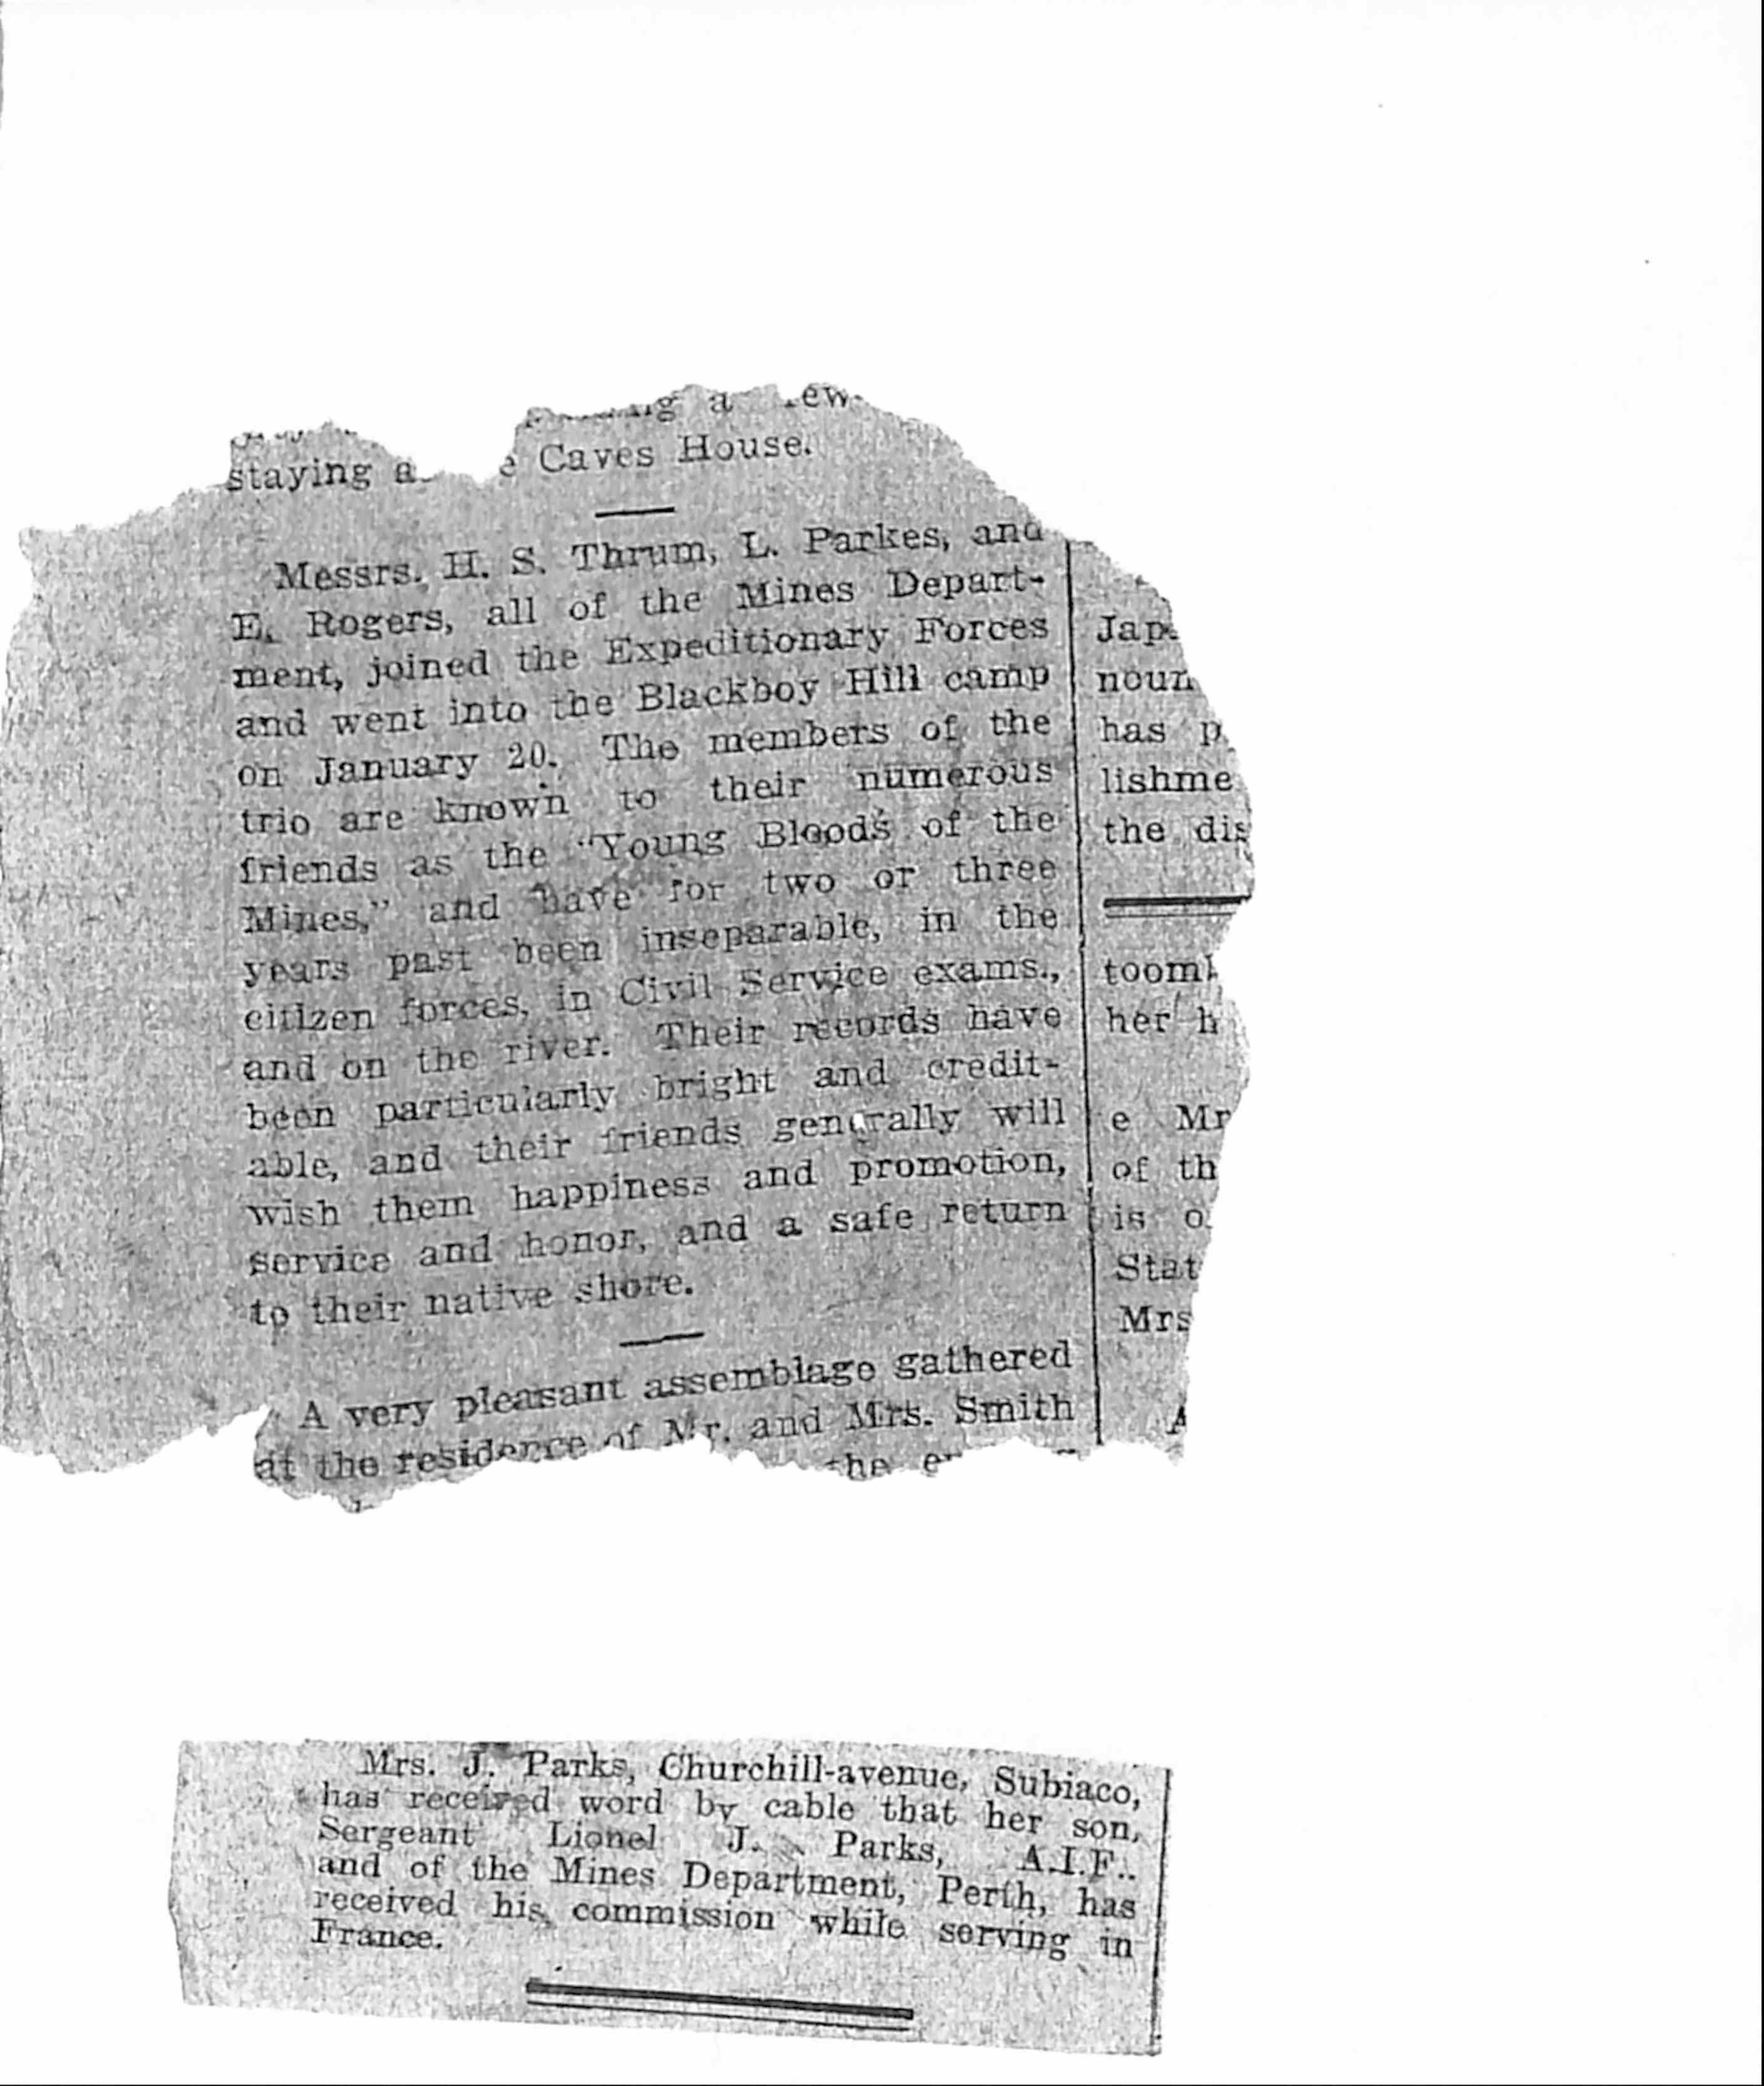 a
staying Caves House.
Messrs. H. S. Thrum, L. Parkes, and
E. Rogers, all of the Mines Depart-
ment, joined the Expeditionary Forces
and went into the Blackboy Hill camp
on January 20. The members of the
trio are known to their numerous
friends as the "Young Bloods of the
Mines," and have for two or three
years past been inseparable, in the
citizen forces, in Civil Service exams.,
and on the river. Their records have
been particularly bright and credit-
able, and their friends generally will
wish them happiness and promotion,
service and honor, and a safe return
to their native shore.
A very pleasant assemblage gathered
at the residence of Mr. and Mrs. Smith
the
has
the
her
e Mr
of th
is
Mrs
Mrs. J. Parks, Churchill-avenue, Subiaco,
has received word by cable that her son,
Sergeant Lionel J. Parks, A.I.F.,
and of the Mines Department, Perth, has
received his commission while serving in
France.